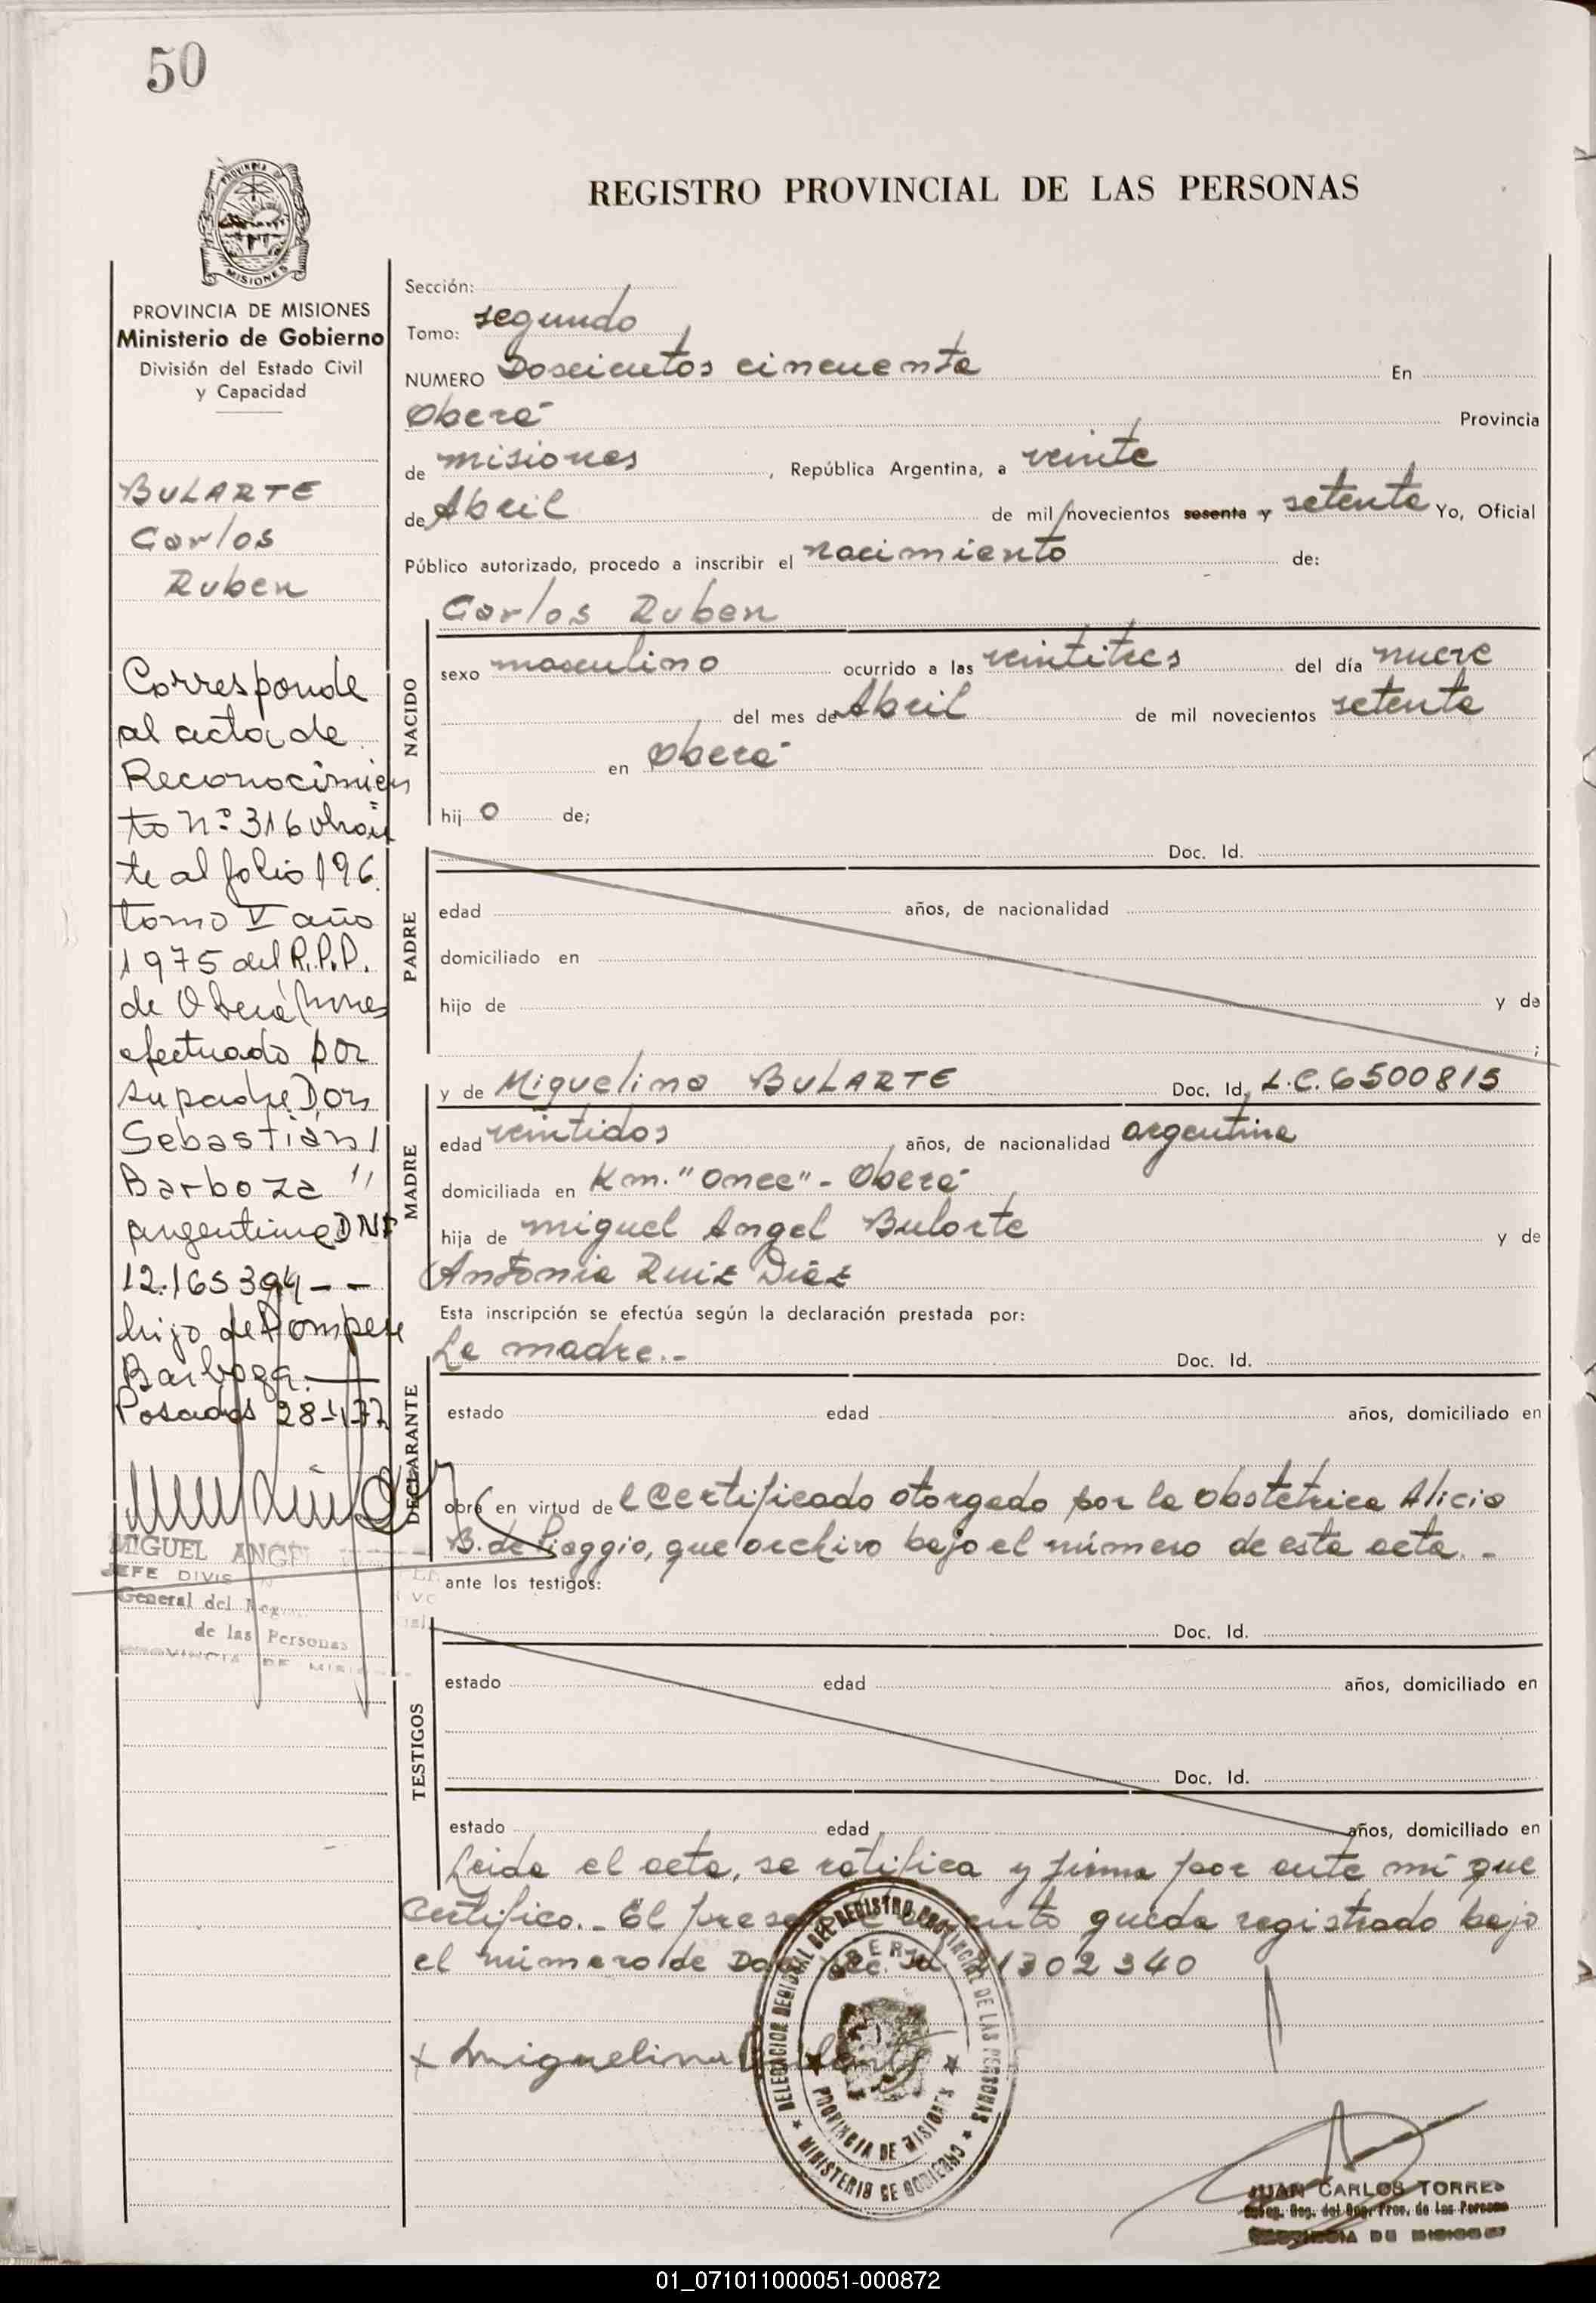 50
PROVINCIA DE
MISIONES
REGISTRO PROVINCIAL DE LAS PERSONAS
PROVINCIA DE MISIONES
Ministerio de Gobierno
División del Estado Civil
y Capacidad
BULARTE
Carlos
Ruben
Corresponde
al acta de
Reconocimien
to nº 316 obran
te al folio 196.
tomo V año
1975 del R.P.P.
de Oberá Mnes
efectuado por
su padre Don
Sebastián
Barboza "
argentino DNI
12.165394 - -
hijo de Pompeo
Barboza.
Posadas 28-
MIGUEL ANGEL
JEFE DIVIS
General del Reg
de las Personas
PROVINCIA DE MISIO
Sección:
Tomo: segundo
NUMERO Doscientos cincuenta En
Oberá Provincia
de misiones , República Argentina, a veinte
de Abril de mil novecientos sesenta y setenta Yo, Oficial
Público autorizado, procedo a inscribir el nacimiento de:
Carlos Ruben
NACIDO
sexo masculino ocurrido a las veintitres del día nueve
del mes de Abril de mil novecientos setenta
en Oberá
hij o de;
PADRE
Doc. Id.
edad años, de nacionalidad
domiciliado en
hijo de y de
;
MADRE
y de Miguelina BULARTE Doc. Id. L.C. 6500815
edad veintidos años, de nacionalidad argentina
domiciliada en Km. "Once" - Oberá
hija de Miguel Angel Bularte y de
Antonia Ruiz Diaz
Esta inscripción se efectúa según la declaración prestada por:
DECLARANTE
La madre.-
Doc. Id.
estado edad años, domiciliado en
obra en virtud de l Certificado otorgado por la Obstetrica Alicia
B. de Piaggio, que archivo bajo el número de esta acta. -
ante los testigos:
TESTIGOS
Doc. Id.
estado edad años, domiciliado en
Doc. Id.
estado edad años, domiciliado en
Leida el acta, se ratifica y firma por ante mí que
Certifico.- El presente queda registrado bajo
el número de Doc. Id. 21302340
x Miguelina Bularte
DELEGACION REGIONAL DEL REGISTRO PROVINCIAL DE LAS PERSONAS
OBERA
PROVINCIA DE MISIONES
MINISTERIO DE GOBIERNO
JUAN CARLOS TORRES
Prov. de las Personas
PROVINCIA DE MISIONES
01_071011000051-000872